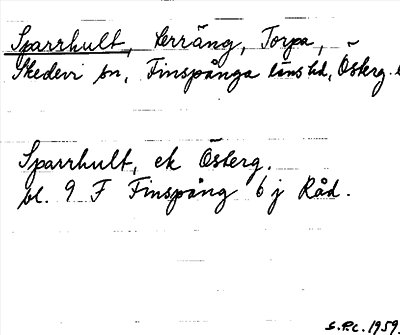 Sparrhult, terräng, Torpa,
Skedevi sn, Finspånga läns hd, Österg.
Sparrhult, ek Österg.
bl. 9 F Finspång 6 j Råd.
S.P.C. 1959.